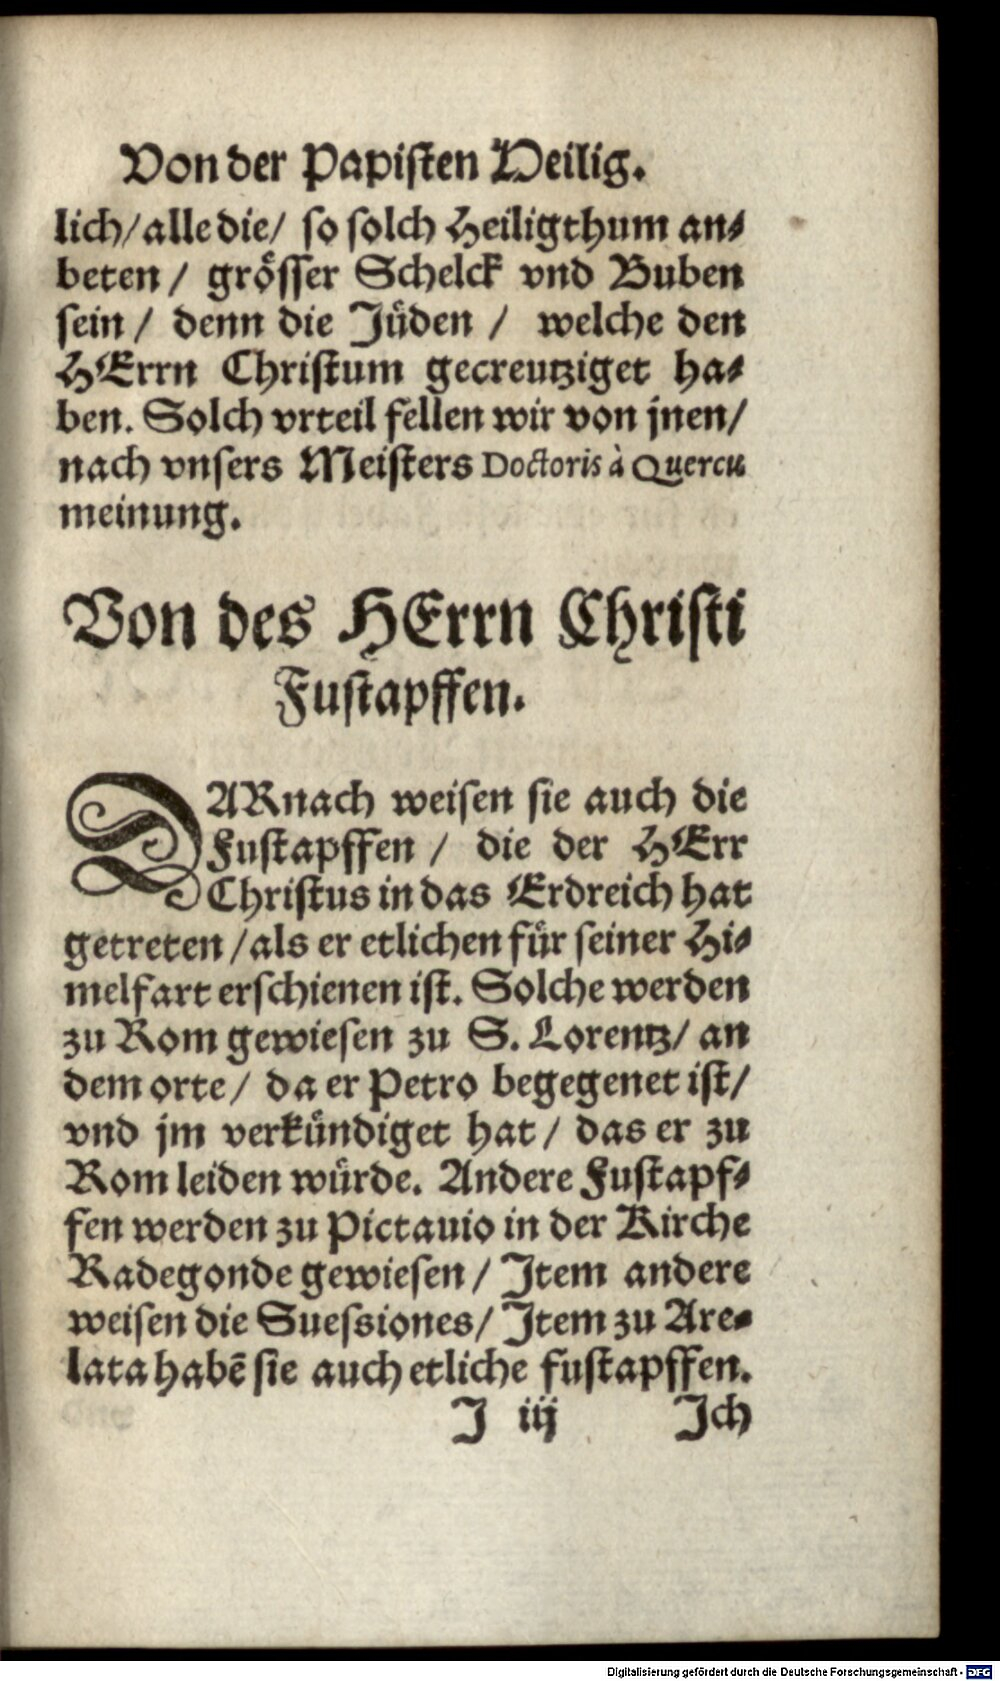 Von der Papisten Heilig.
lich/ alle die/ so solch Heiligthum an⸗
beten / grösser Schelck vnd Buben
sein / denn die Jüden / welche den
HErrn Christum gecreutziget ha⸗
ben. Solch vrteil fellen wir von jnen/
nach vnsers Meisters Doctoris à Quercu
meinung.
Von des HErrn Christi
Fustapffen.
DARnach weisen sie auch die
Fustapffen / die der HErr
Christus in das Erdreich hat
getreten / als er etlichen für seiner Hi⸗
melfart erschienen ist. Solche werden
zu Rom gewiesen zu S. Lorentz/ an
dem orte / da er Petro begegenet ist/
vnd jm verkündiget hat / das er zu
Rom leiden würde. Andere Fustapf⸗
fen werden zu Pictauio in der Kirche
Radegonde gewiesen / Item andere
weisen die Suessiones/ Item zu Are⸗
lata habē sie auch etliche fustapffen.
J iij Ich
Digitalisierung gefördert durch die Deutsche Forschungsgemeinschaft - DFG